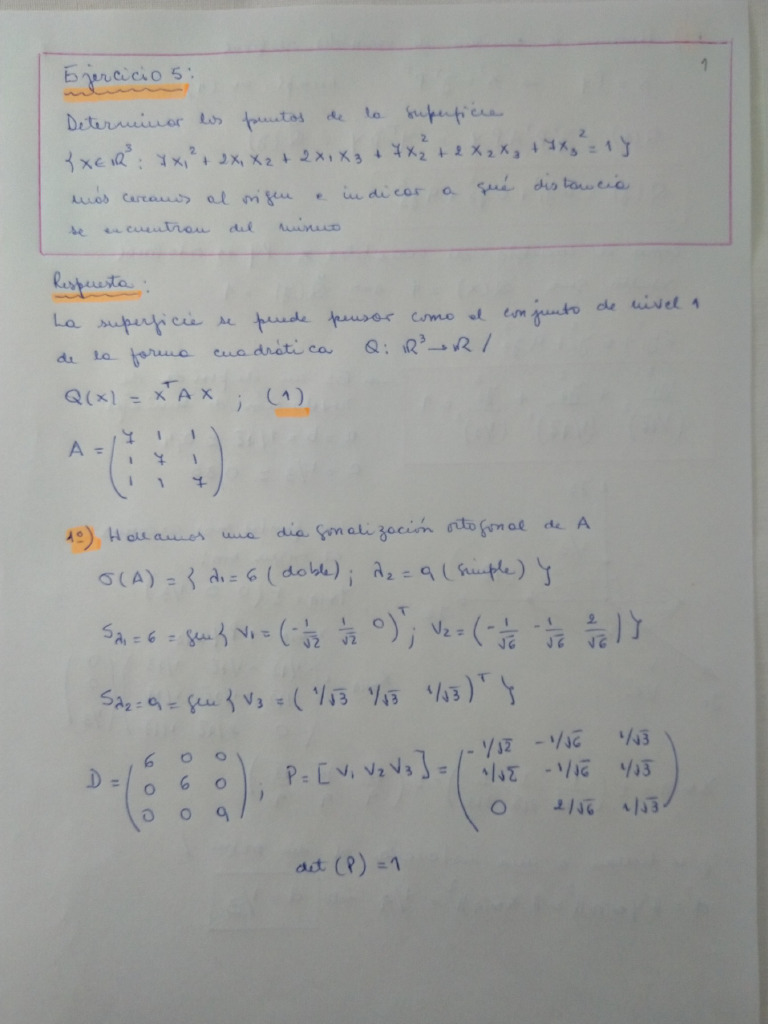 1
Ejercicio 5:
Determinar los puntos de la superficie
{x∈ℝ³: 7x₁² + 2x₁x₂ + 2x₁x₃ + 7x₂² + 2x₂x₃ + 7x₃² = 1}
más cercanos al origen e indicar a qué distancia
se encuentran del mismo
Respuesta:
La superficie se puede pensar como el conjunto de nivel 1
de la forma cuadrática Q: ℝ³→ℝ /
Q(x) = xᵀAx ; (1)
A = (7 1 1
1 7 1
1 1 7)
1º) Hallamos una diagonalización ortogonal de A
σ(A) = { λ₁=6 (doble); λ₂=9 (simple) }
Sλ₁=6 = gen{ V₁ = (-1/√2 1/√2 0)ᵀ; V₂ = (-1/√6 -1/√6 2/√6) }
Sλ₂=9 = gen{ V₃ = (1/√3 1/√3 1/√3)ᵀ }
D = (6 0 0
0 6 0
0 0 9) ; P = [V₁ V₂ V₃] = (-1/√2 -1/√6 1/√3
1/√2 -1/√6 1/√3
0 2/√6 1/√3)
det(P) = 1